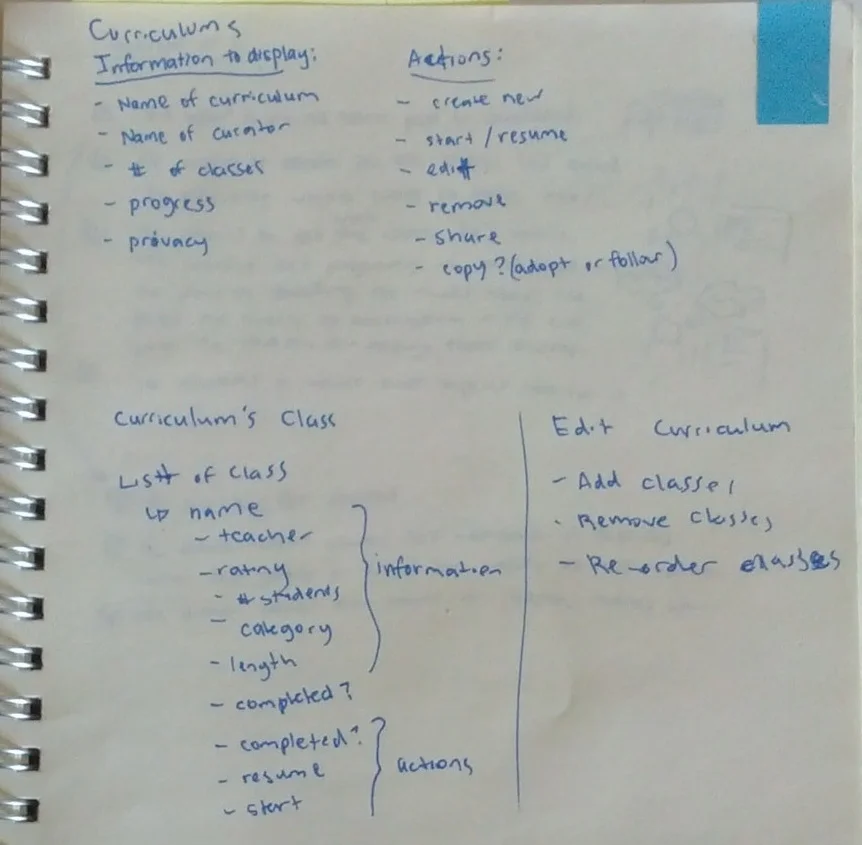 Curriculums
Information to display:
- Name of curriculum
- Name of curator
- # of classes
- progress
- privacy
Actions:
- create new
- start / resume
- edit
- remove
- share
- copy? (adopt or follow)
Curriculum's Class
List of class
↳ name
- teacher
- rating
- # students
- category
- length
information
- completed?
- completed?
- resume
- start
actions
Edit Curriculum
- Add classes
- Remove classes
- Re-order classes